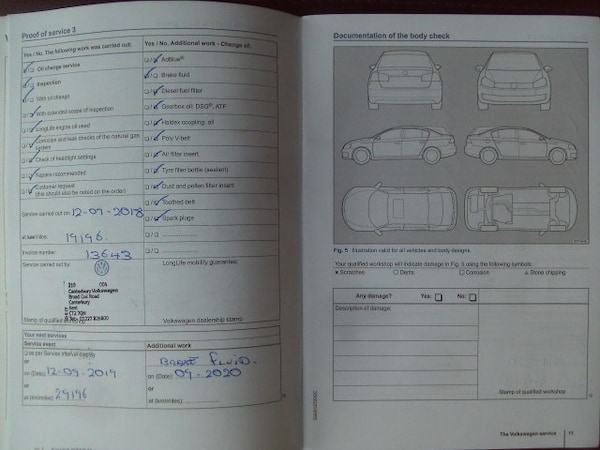 Proof of service 3
Yes / No. The following work was carried out:
Oil change service
Inspection
With oil change
With extended scope of inspection
LongLife engine oil used
Corrosion and leak checks of the natural gas
system
Check of headlight settings
Repairs recommended
Customer request
(this should also be noted on the order)
Service carried out on: 12-09-2018
at km/miles: 19196
Invoice number: 13643
Service carried out by:
Canterbury Volkswagen
Broad Oak Road
Canterbury
Kent
CT2 7QH
Stamp of qualified
Yes / No. Additional work - Change of:
AdBlue®
Brake fluid
Diesel fuel filter
Gearbox oil: DSG®, ATF
Haldex coupling: oil
Poly V-belt
Air filter insert
Tyre filler bottle (sealant)
Dust and pollen filter insert
Toothed belt
Spark plugs
LongLife mobility guarantee:
Volkswagen dealership stamp
Your next services
Service event
as per Service interval display
or
on (Date): 12-09-2019
or
at (km/miles): 29196
Additional work
BRAKE FLUID.
on (Date): 09-2020
or
at (km/miles):
Documentation of the body check
Fig. 5 Illustration valid for all vehicles and body designs.
Your qualified workshop will indicate damage in Fig. 5 using the following symbols:
x Scratches ○ Dents □ Corrosion △ Stone chipping
Any damage? Yes: No:
Description of damage:
Stamp of qualified workshop
The Volkswagen service 11